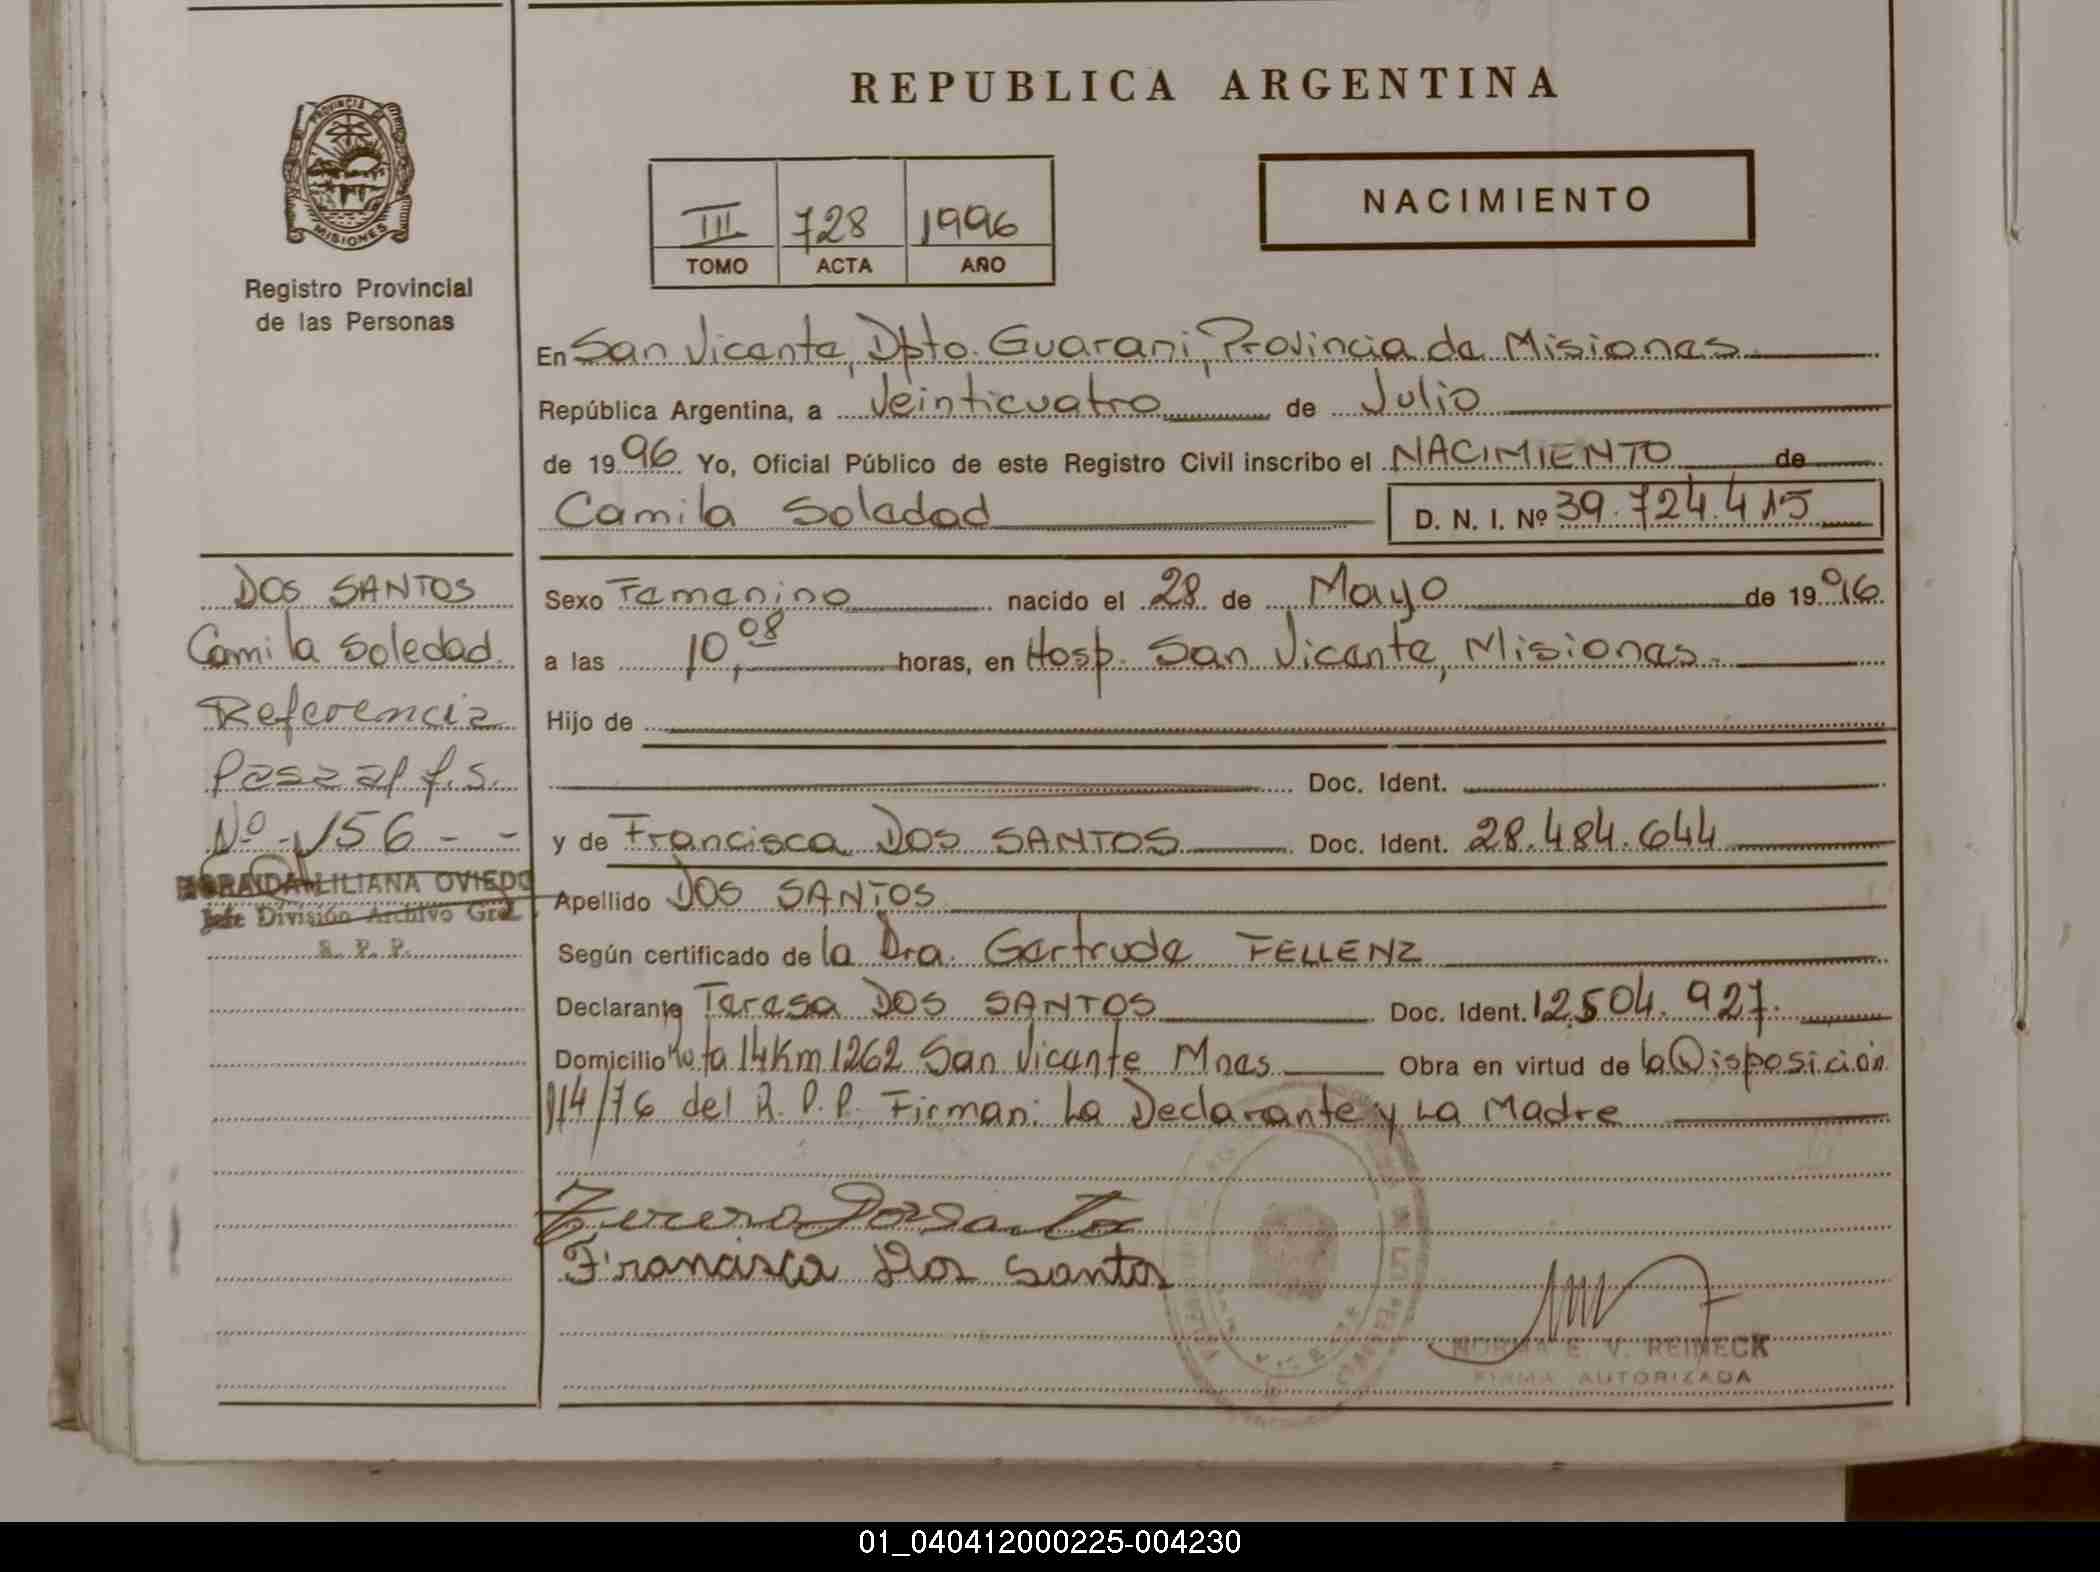 PROVINCIA
MISIONES
Registro Provincial
de las Personas
REPUBLICA ARGENTINA
NACIMIENTO
III 728 1996
TOMO ACTA AÑO
En San Vicente, Dpto. Guarani, Provincia de Misiones
República Argentina, a Veinticuatro de Julio
de 1996 Yo, Oficial Público de este Registro Civil inscribo el NACIMIENTO de
Camila Soledad D. N. I. Nº 39.724.415
DOS SANTOS
Camila Soledad
Referencia
Pasa al f.s.
Nº 156 - -
LILIANA OVIEDO
Jefe División Archivo Gral.
R. P. P.
Sexo Femenino nacido el 28 de Mayo de 1996
a las 10,08 horas, en Hosp. San Vicente, Misiones.
Hijo de
Doc. Ident.
y de Francisca DOS SANTOS Doc. Ident. 28.484.644
Apellido DOS SANTOS
Según certificado de la Dra. Gertrude FELLENZ
Declarante Teresa DOS SANTOS Doc. Ident. 12.504.927.
Domicilio Ruta 14 Km 1262 San Vicente Mnes Obra en virtud de la Disposición
114/76 del R.P.P. Firman: La Declarante y La Madre
Francisca Dos Santos
NORMA E. V. REINECK
FIRMA AUTORIZADA
01_040412000225-004230